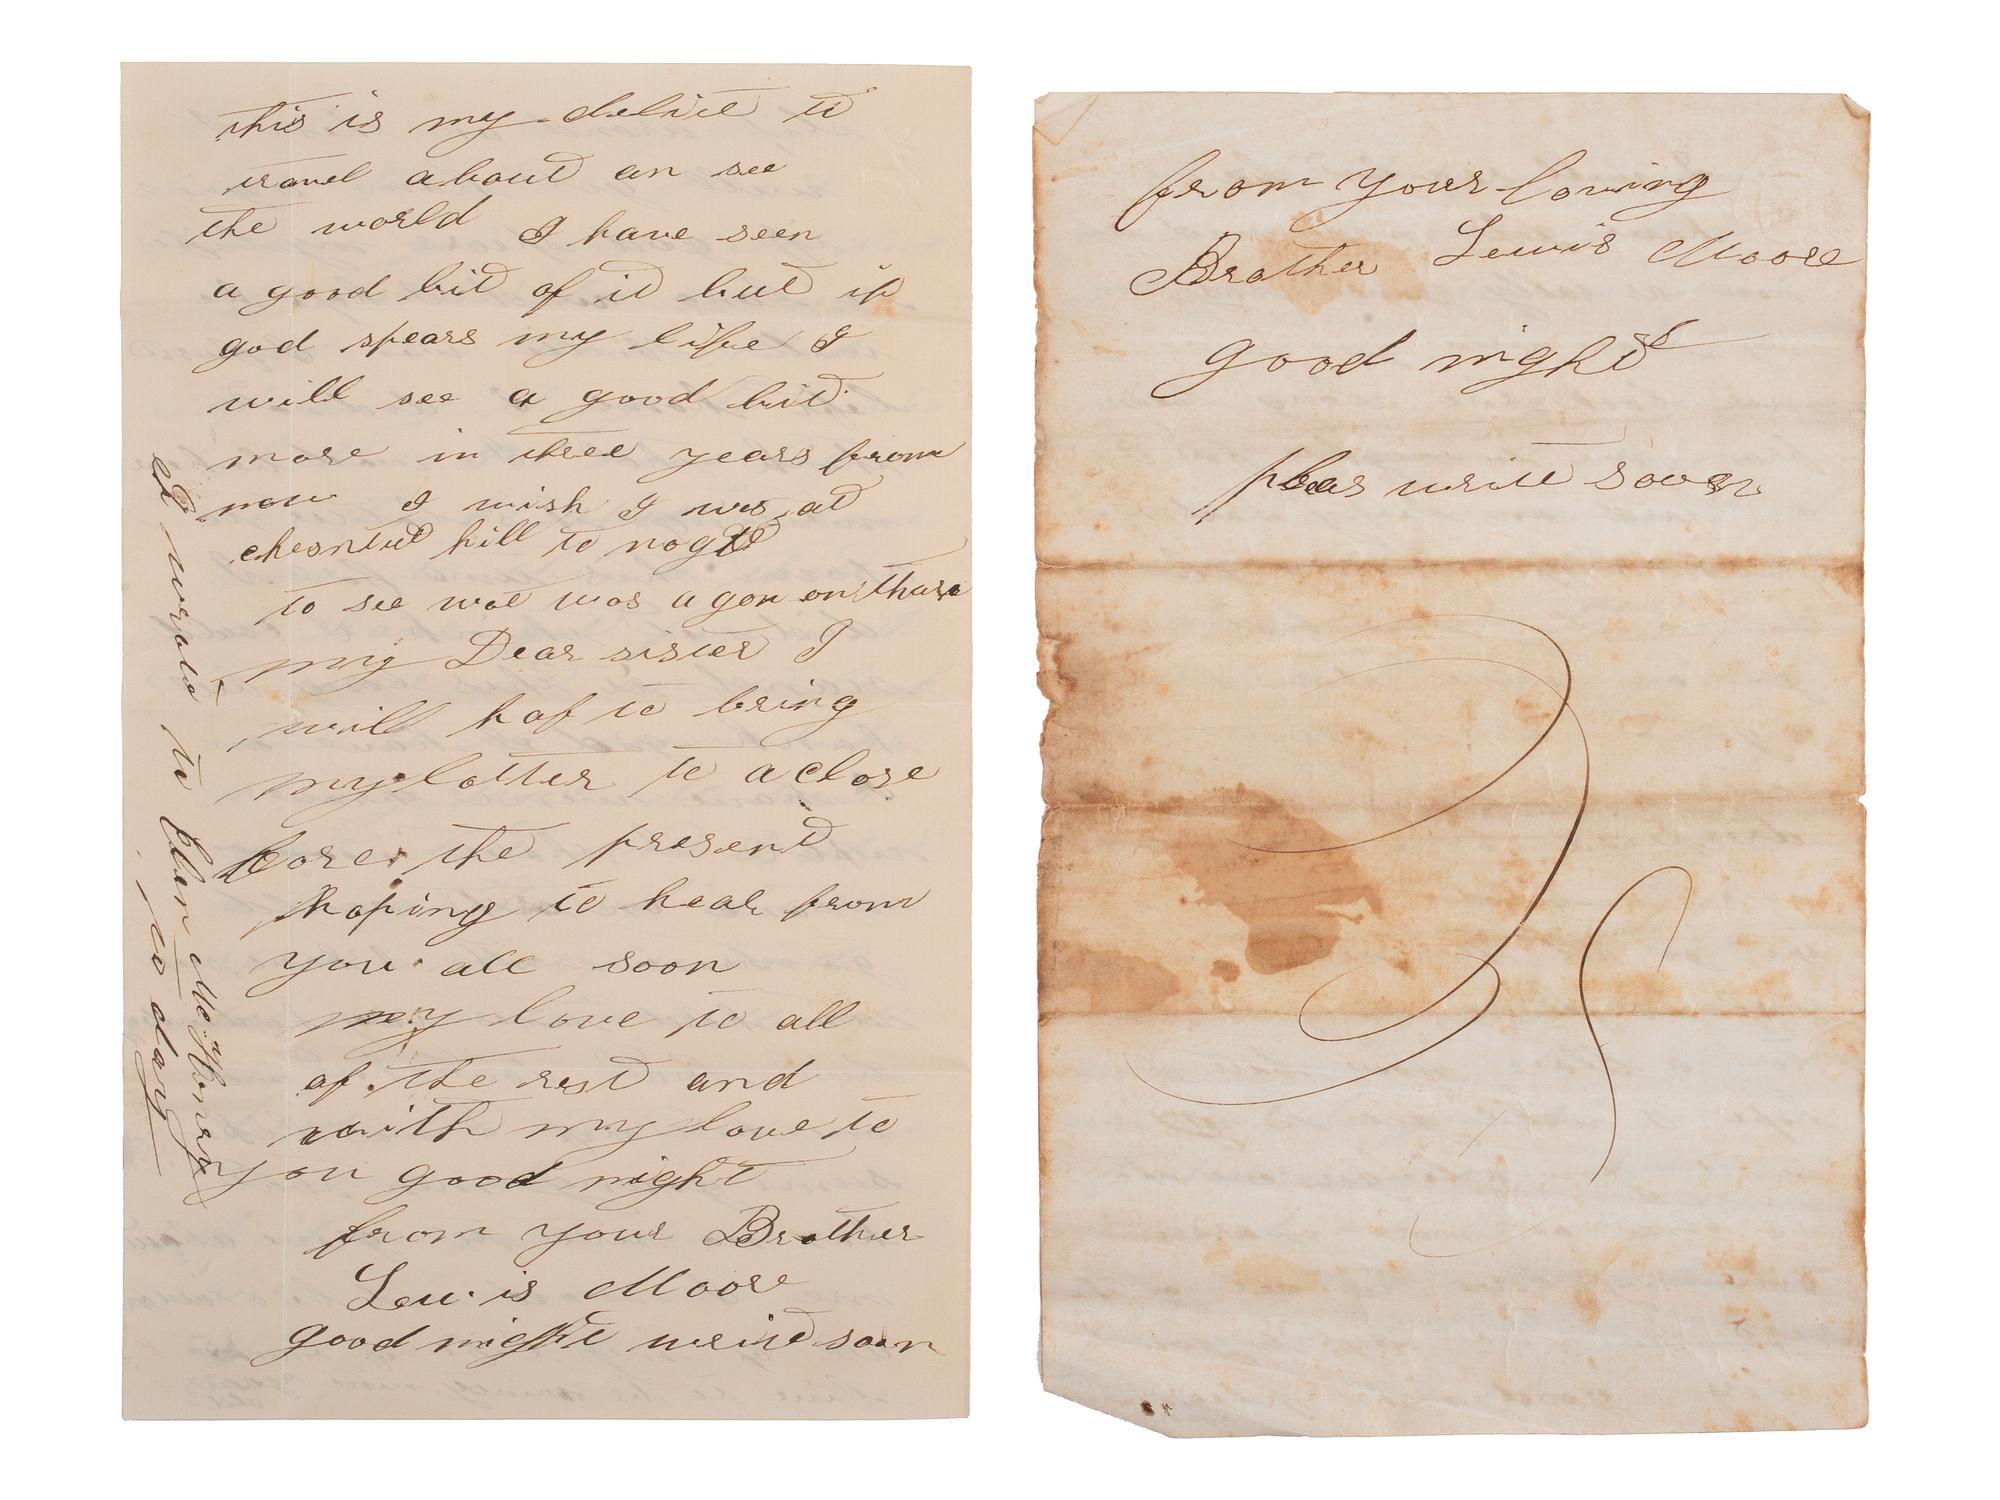 this is my delite to
travel about an see
the world I have seen
a good bit of it but if
god spears my life I
will see a good bit
more in three years from
now I wish I was at
chesntut hill to nogt
to see wat was a gon on thare
my Dear sister I
will haf to bring
my letter to a close
fore the present
hoping to hear from
you all soon
my love to all
of the rest and
with my love to
you good night
from your Brother
Lewis Moore
good night write soon
wrote to Elen McHenry
to day
from your loving
Brother Lewis Moore
good night
pleas write soon